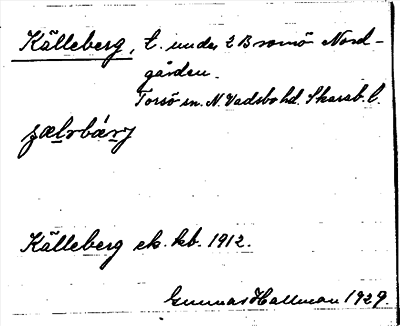 Källeberg, t. under 2 Bromö Nord-
gården.
Torsö sn. N. Vadsbo hd. Skarab. l.
Källeberg ek. kb. 1912.
Gunnar Hallman 1929.